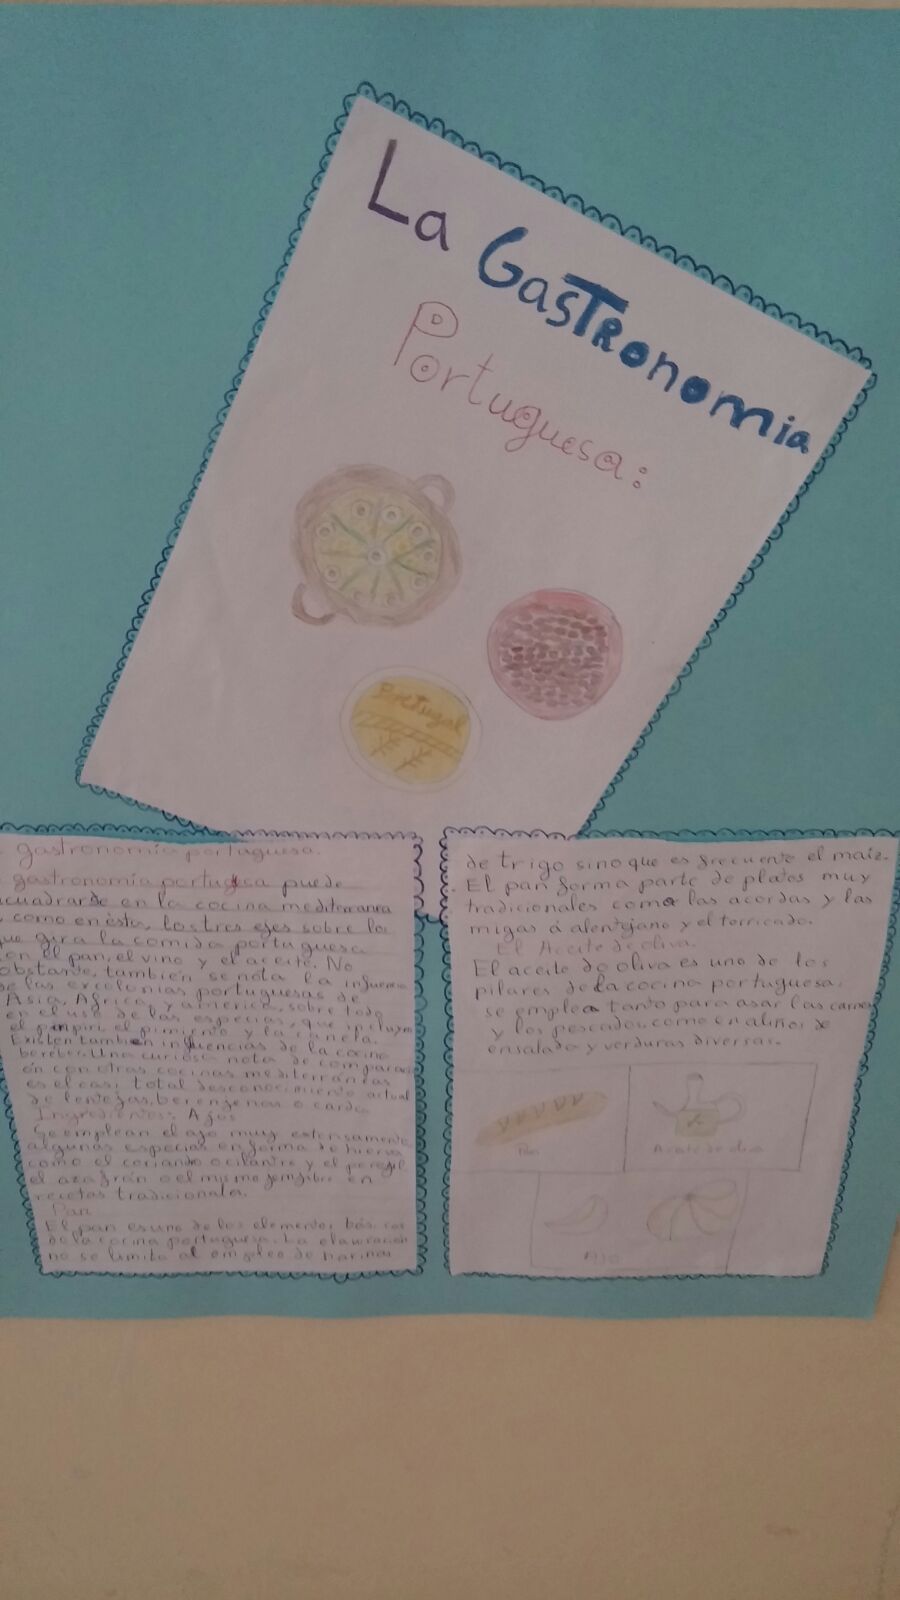 La Gastronomia
Portuguesa:
Portugal
gastronomía portuguesa.
gastronomía portuguesa puede
cuadrarse en la cocina mediterranea
como en ésta, los tres ejes sobre los
que gira la comida portuguesa
son el pan, el vino y el aceite. No
obstante, también se nota la influencia
de las excolonias portuguesas de
Asia, Africa, y america, sobre todo
en el uso de las especias, que incluyen
el piripiri, el pimiento y la canela.
Existen también influencias de la cocina
bereber. Una curiosa nota de comparaci
ón con otras cocinas mediterráneas
es el casi total desconocimiento actual
de lentejas, berengenas o cardo
Ingredientes: Ajos
Se emplean el ajo muy extensamente
algunas especias en forma de hierva
como el coriando o cilantro y el peregil
el azafrán o el mismo jemjibre en
recetas tradicionales.
Pan
El pan es uno de los elementos básicos
de la cocina portuguesa. La elavoración
no se limita al empleo de harinas
de trigo sino que es frecuente el maíz.
El pan forma parte de platos muy
tradicionales como las acordas y las
migas á alentejano y el torricado.
El Aceite de oliva.
El aceite de oliva es uno de los
pilares de la cocina portuguesa:
se emplea tanto para asar las carnes
y los pescados, como en aliños de
ensalada y verduras diversas.
Pan
Aceite de oliva
Ajo